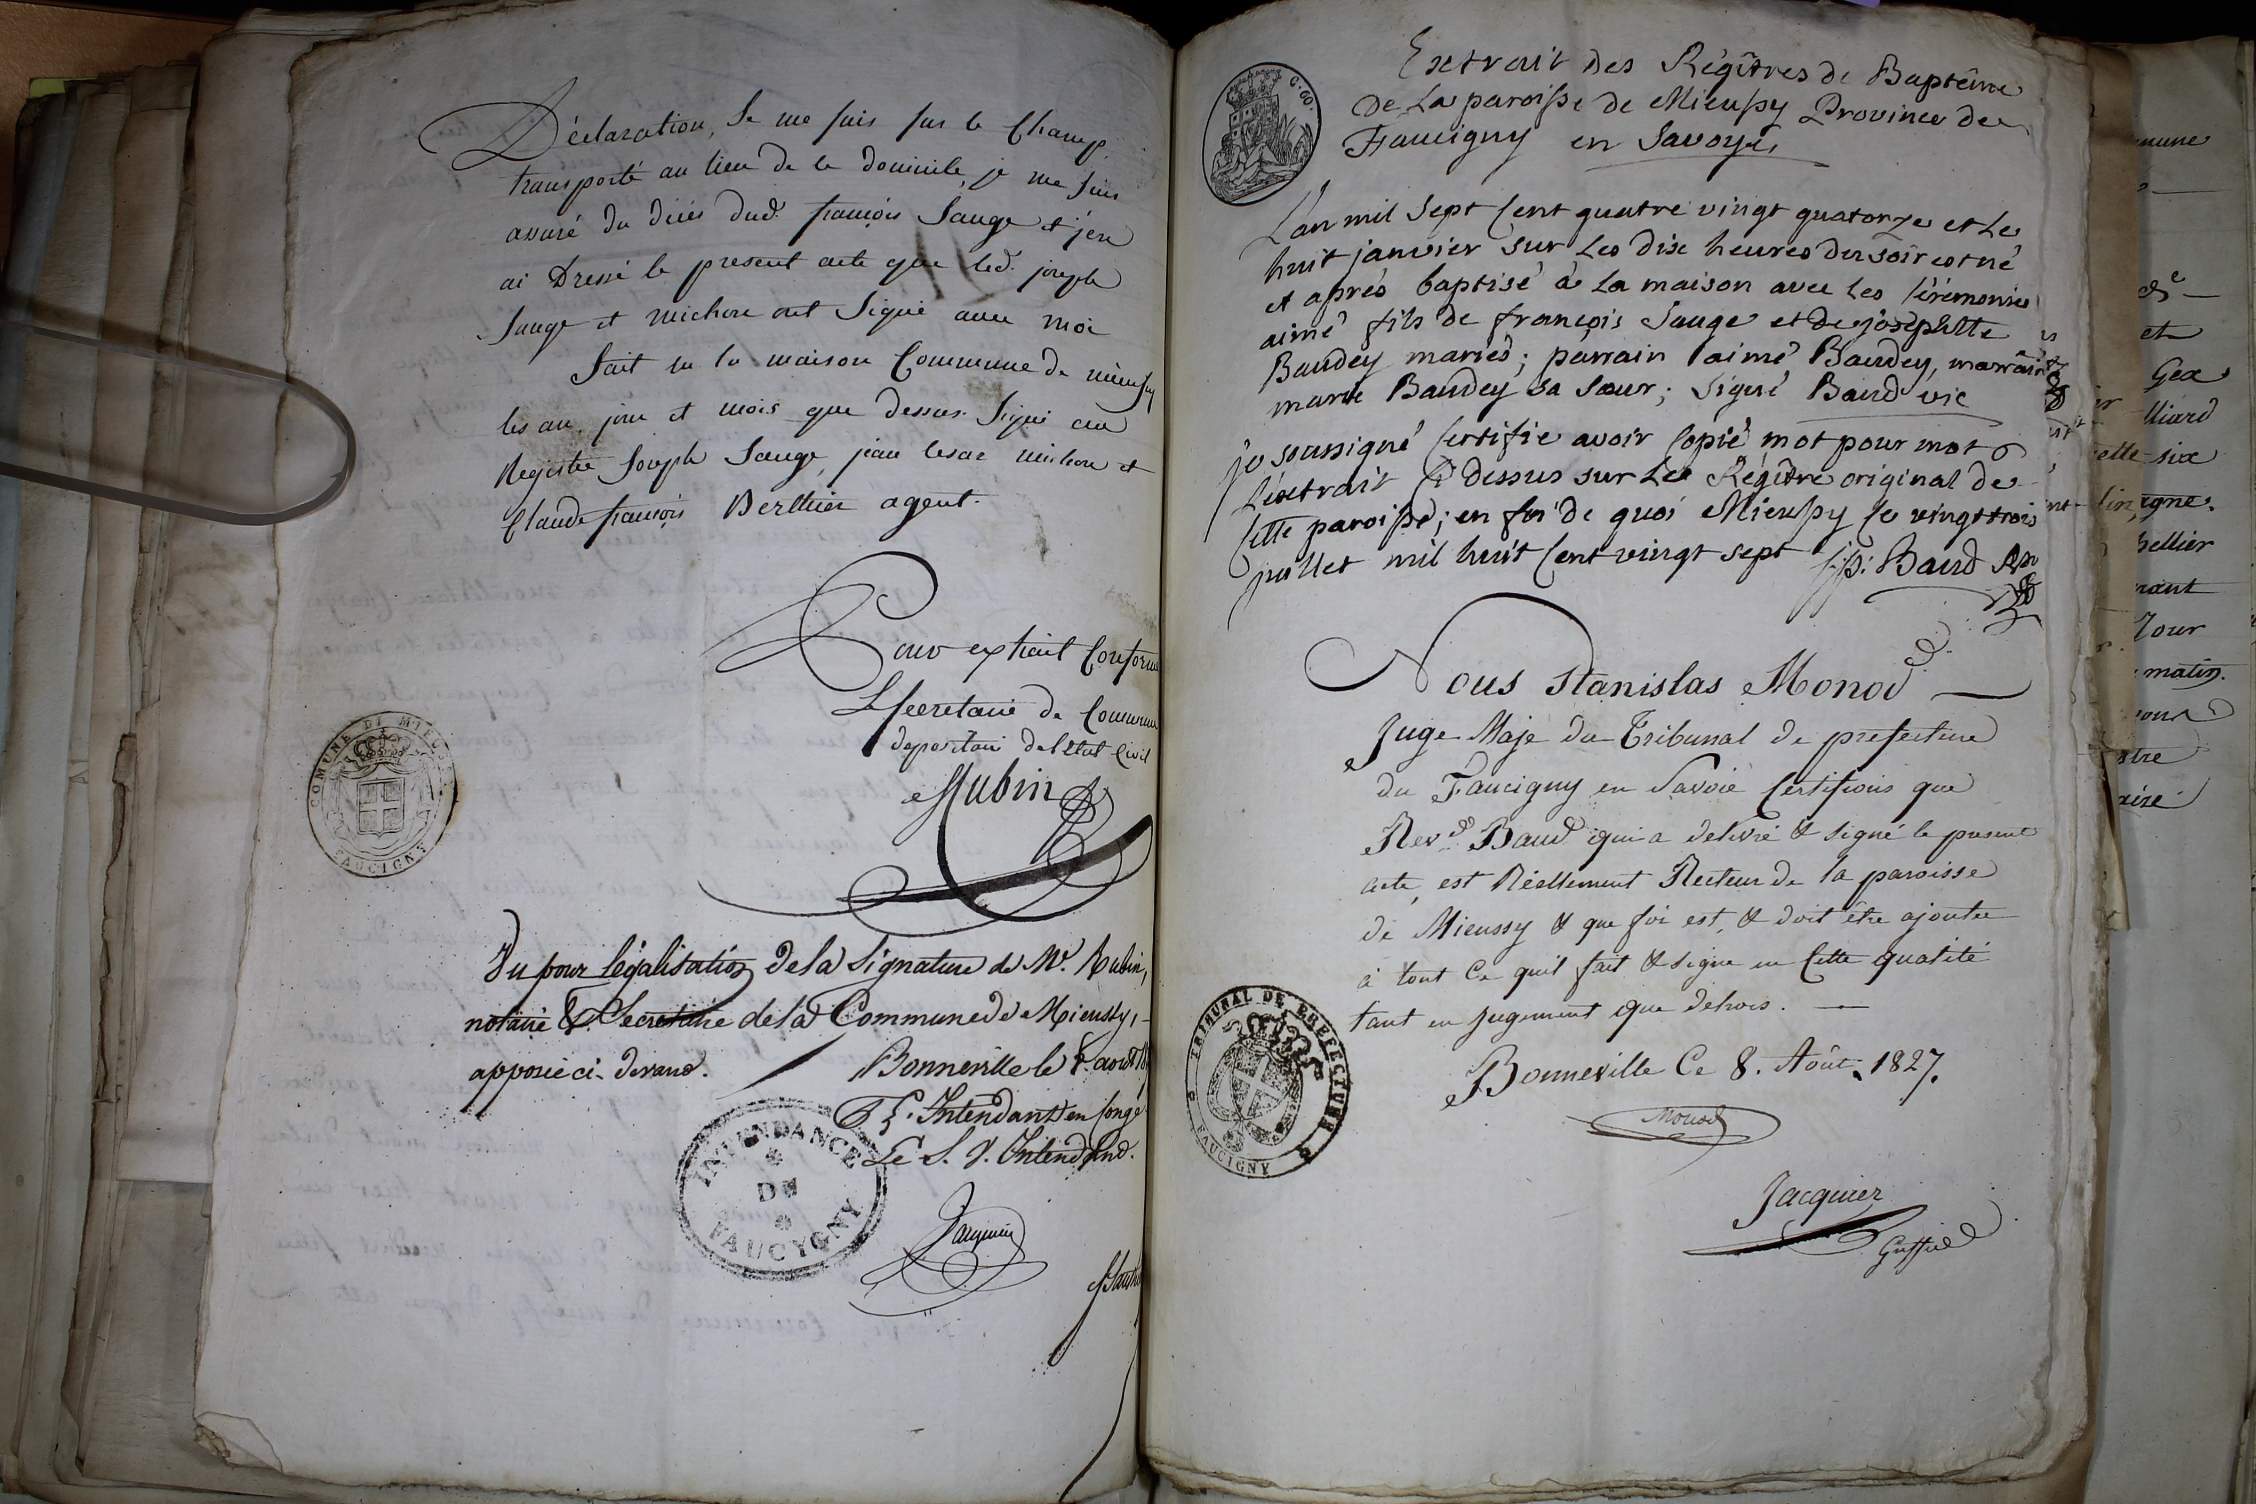 Déclaration, Je me suis sur le Champ
transporté au lieu de le domicile, je me suis
assuré du décés dud. françois Sauge et j'en
ai Dressé le present acte que led. joseph
Sauge et michon ont Signé avec moi
fait en la maison Commune de mieussy
les an, jour et mois que dessus Signé au
Registre Joseph Sauge, jean michon et
Claude françois Berthier agent.
Pour extrait Conforme
Le Secretaire de Commune
depositaire de l'etat Civil
Rubin
COMUNE DI MIEUSSY
FAUCIGNY
Vu pour légalisation de la Signature de Mr. Rubin,
notaire & Secretaire de la Commune de Mieussy,
apposée ci-devant. Bonneville le 8 août
Pr. l'Intendant en Congé
Le S. I. Intendant.
INTENDANCE
DU
FAUCYGNY
Jacquier
C. 60.
Extrait des Régîtres de Baptême
de La paroisse de Mieussy Province de
Faucigny en Savoye,
L'an mil Sept Cent quatre vingt quatorze et Le
huit janvier sur Les dix heures du soir est né
et aprés baptisé à La maison avec Les Cérémonies
aimé fils de françois Sauge et de josephtte
Baudey mariés; parrain aimé Baudey, marraine
marie Baudey sa sœur; Signé Baud vic
je soussigné Certifie avoir Copié mot pour mot
L'extrait Ci dessus sur Le Régître original de
Cette paroisse; en foi de quoi Mieussy le vingt trois
juillet mil huit Cent vingt sept Baud
Nous Stanislas Monod
Juge Maje du Tribunal de prefecture
du Faucigny en Savoie Certifions que
Revd. Baud qui a delivré & signé le present
acte, est Réellement Recteur de la paroisse
de Mieussy & que foi est, & doit être ajoutée
à tout Ce quil fait & signe en Cette qualité
tant en jugement que dehors.
TRIBUNAL DE PREFECTURE
FAUCIGNY
Bonneville Ce 8. Août. 1827.
Monod
Jacquier
Greffier
Gex
lliard
six
ligne.
hellier
Jour
matin.